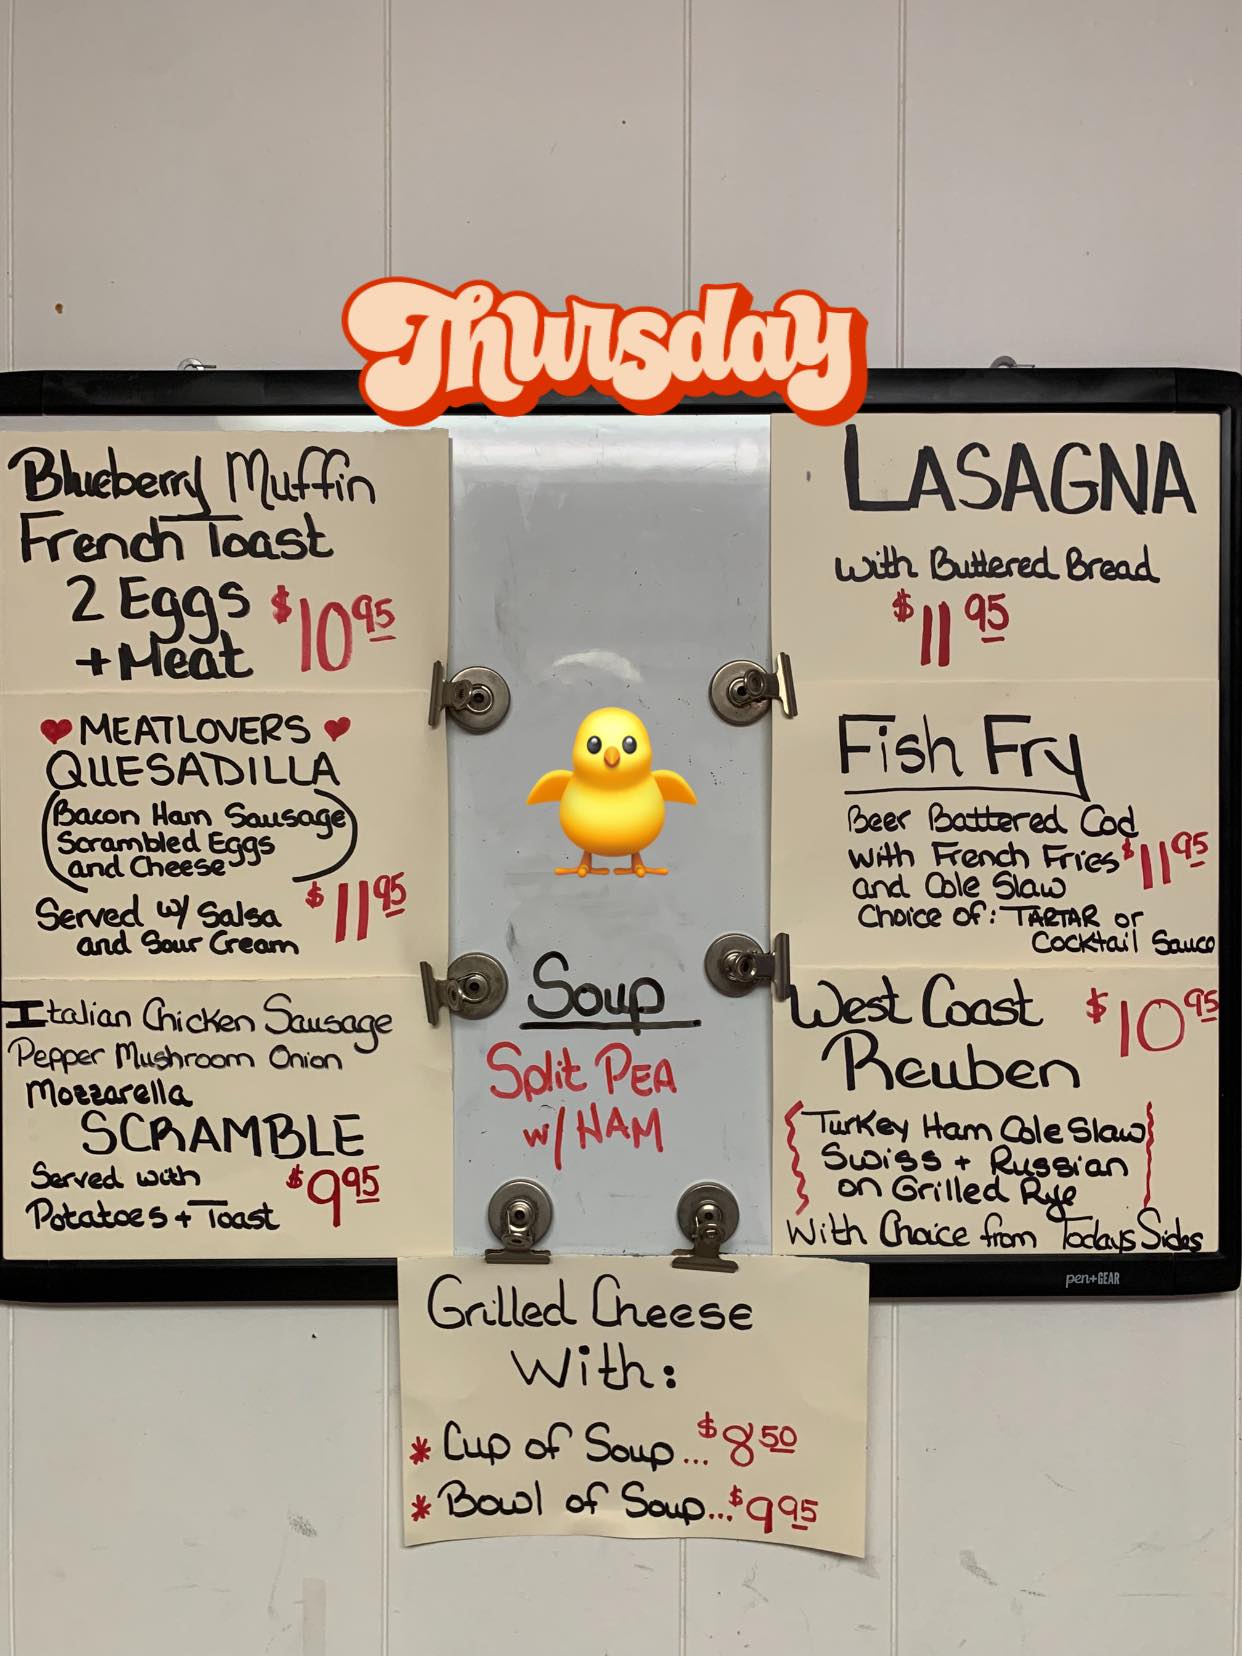 Thursday
Blueberry Muffin
French Toast
2 Eggs
+Meat
$10.95
MEATLOVERS
QUESADILLA
(Bacon Ham Sausage
Scrambled Eggs
and Cheese)
Served w/ Salsa
and Sour Cream
$11.95
Italian Chicken Sausage
Pepper Mushroom Onion
Mozzarella
SCRAMBLE
Served with
Potatoes + Toast
$9.95
Soup
Split PEA
w/ HAM
LASAGNA
with Buttered Bread
$11.95
Fish Fry
Beer Battered Cod
with French Fries
and Cole Slaw
Choice of: TARTAR or
Cocktail Sauce
$11.95
West Coast
Reuben
$10.95
Turkey Ham Cole Slaw
Swiss + Russian
on Grilled Rye
With Choice from Todays Sides
pen+GEAR
Grilled Cheese
With:
* Cup of Soup... $8.50
* Bowl of Soup... $9.95